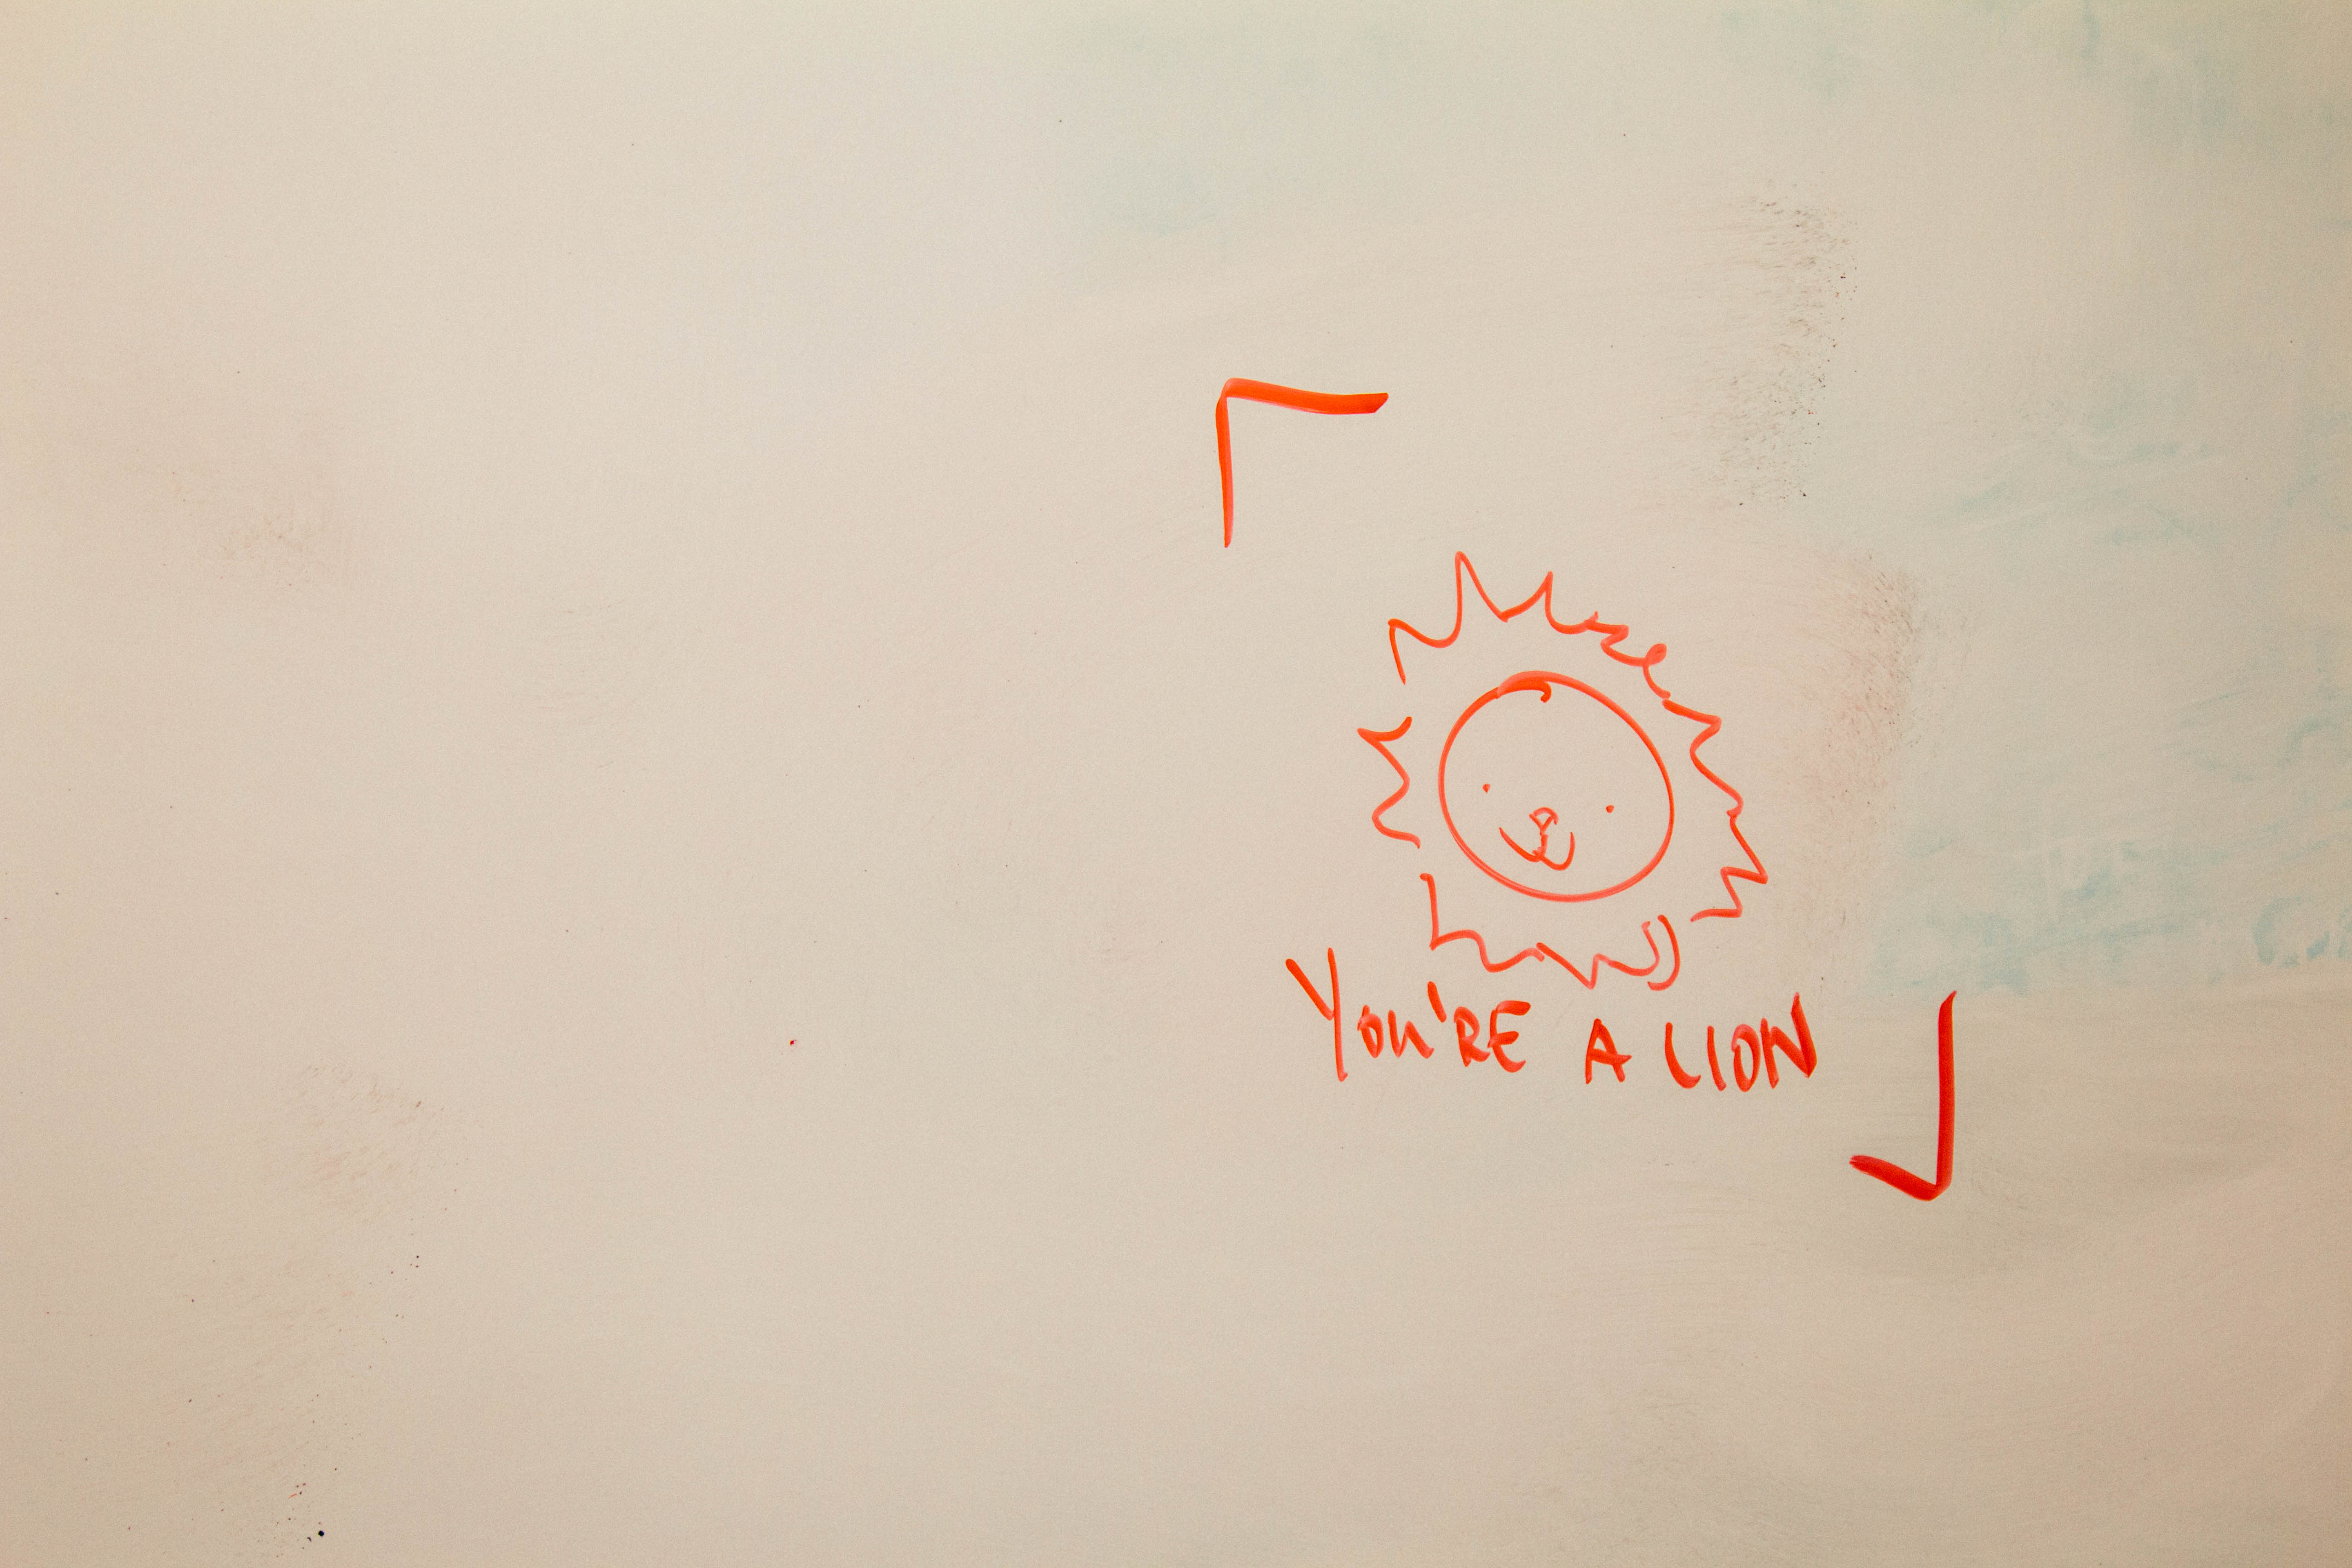 YOU'RE A LION